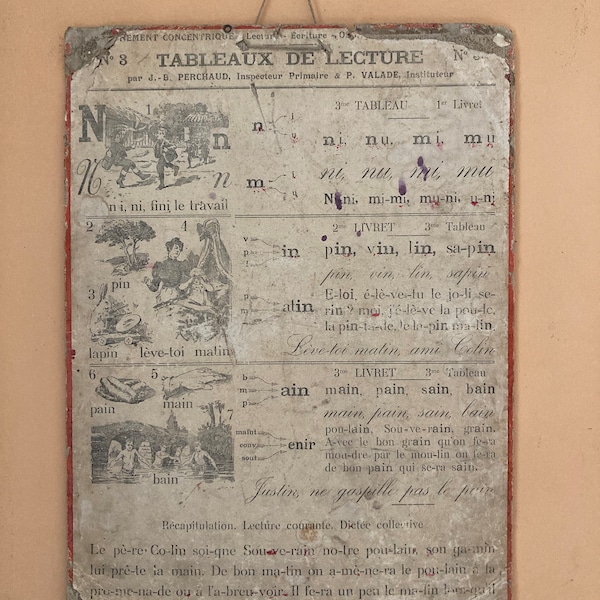 NEMENT CONCENTRIQUE. Lecture - Ecriture - O
N° 3 TABLEAUX DE LECTURE N° 3
par J.-B. PERCHAUD, Inspecteur Primaire & P. VALADE, Instituteur
3me TABLEAU 1er Livret
N 1 n
n i
ni, nu, mi, mu
N n
m
ni, nu, mi, mu
n i, ni, fini le travail
Ni-ni, mi-mi, mu-ni, u-ni
2me LIVRET 3me Tableau
2 4
v p l in
pin, vin, lin, sa-pin
pin
pin, vin, lin, sapin
3
m atin
E-loi, é-lè-ve-tu le jo-li se-
rin ? moi, j'é-lè-ve la pou-le,
la pin-ta-de, le la-pin ma-lin
lapin lève-toi matin
Lève-toi matin, ami Colin
3me LIVRET 3me Tableau
6 5
b m p ain
main, pain, sain, bain
pain main
main, pain, sain, bain
7
pou-lain, Sou-ve-rain, grain.
mafut conv sout enir
A-vec le bon grain qu'on fe-ra
mou-dre par le mou-lin on fe-ra
de bon pain qui se-ra sain.
bain
Justin, ne gaspille pas le pain
Récapitulation. Lecture courante. Dictée collective
Le pè-re Co-lin soi-gne Sou-ve-rain no-tre pou-lain, son ga-min
lui prê-te la main. De bon ma-tin on a-mè-ne-ra le pou-lain à la
pro-me-na-de ou à l'a-breu-voir. Il fe-ra un peu le ma-lin lors-qu'il